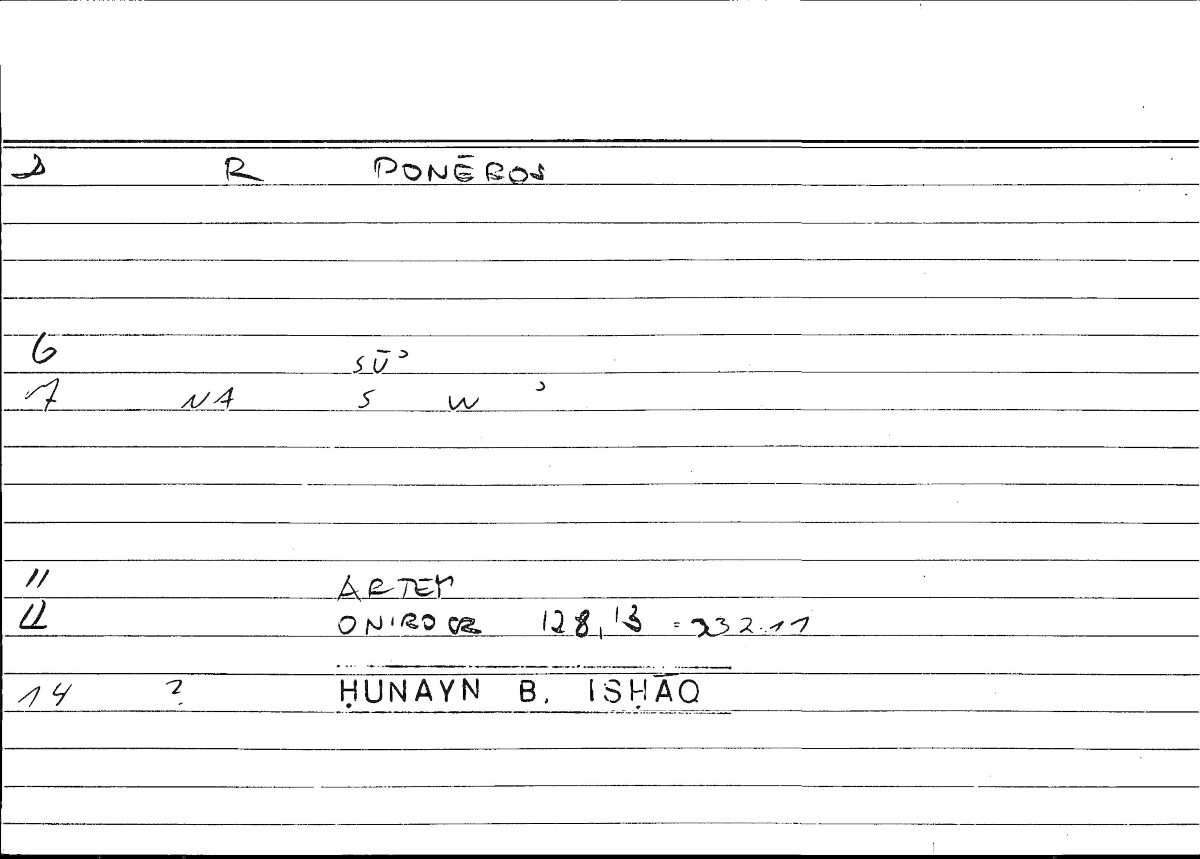 R PONĒROS
6 SŪʾ
7 NA S W ʾ
11 ARTEM
12 ONIROCR 128,13 = 232.11
14 ? ḤUNAYN B. ISḤĀQ